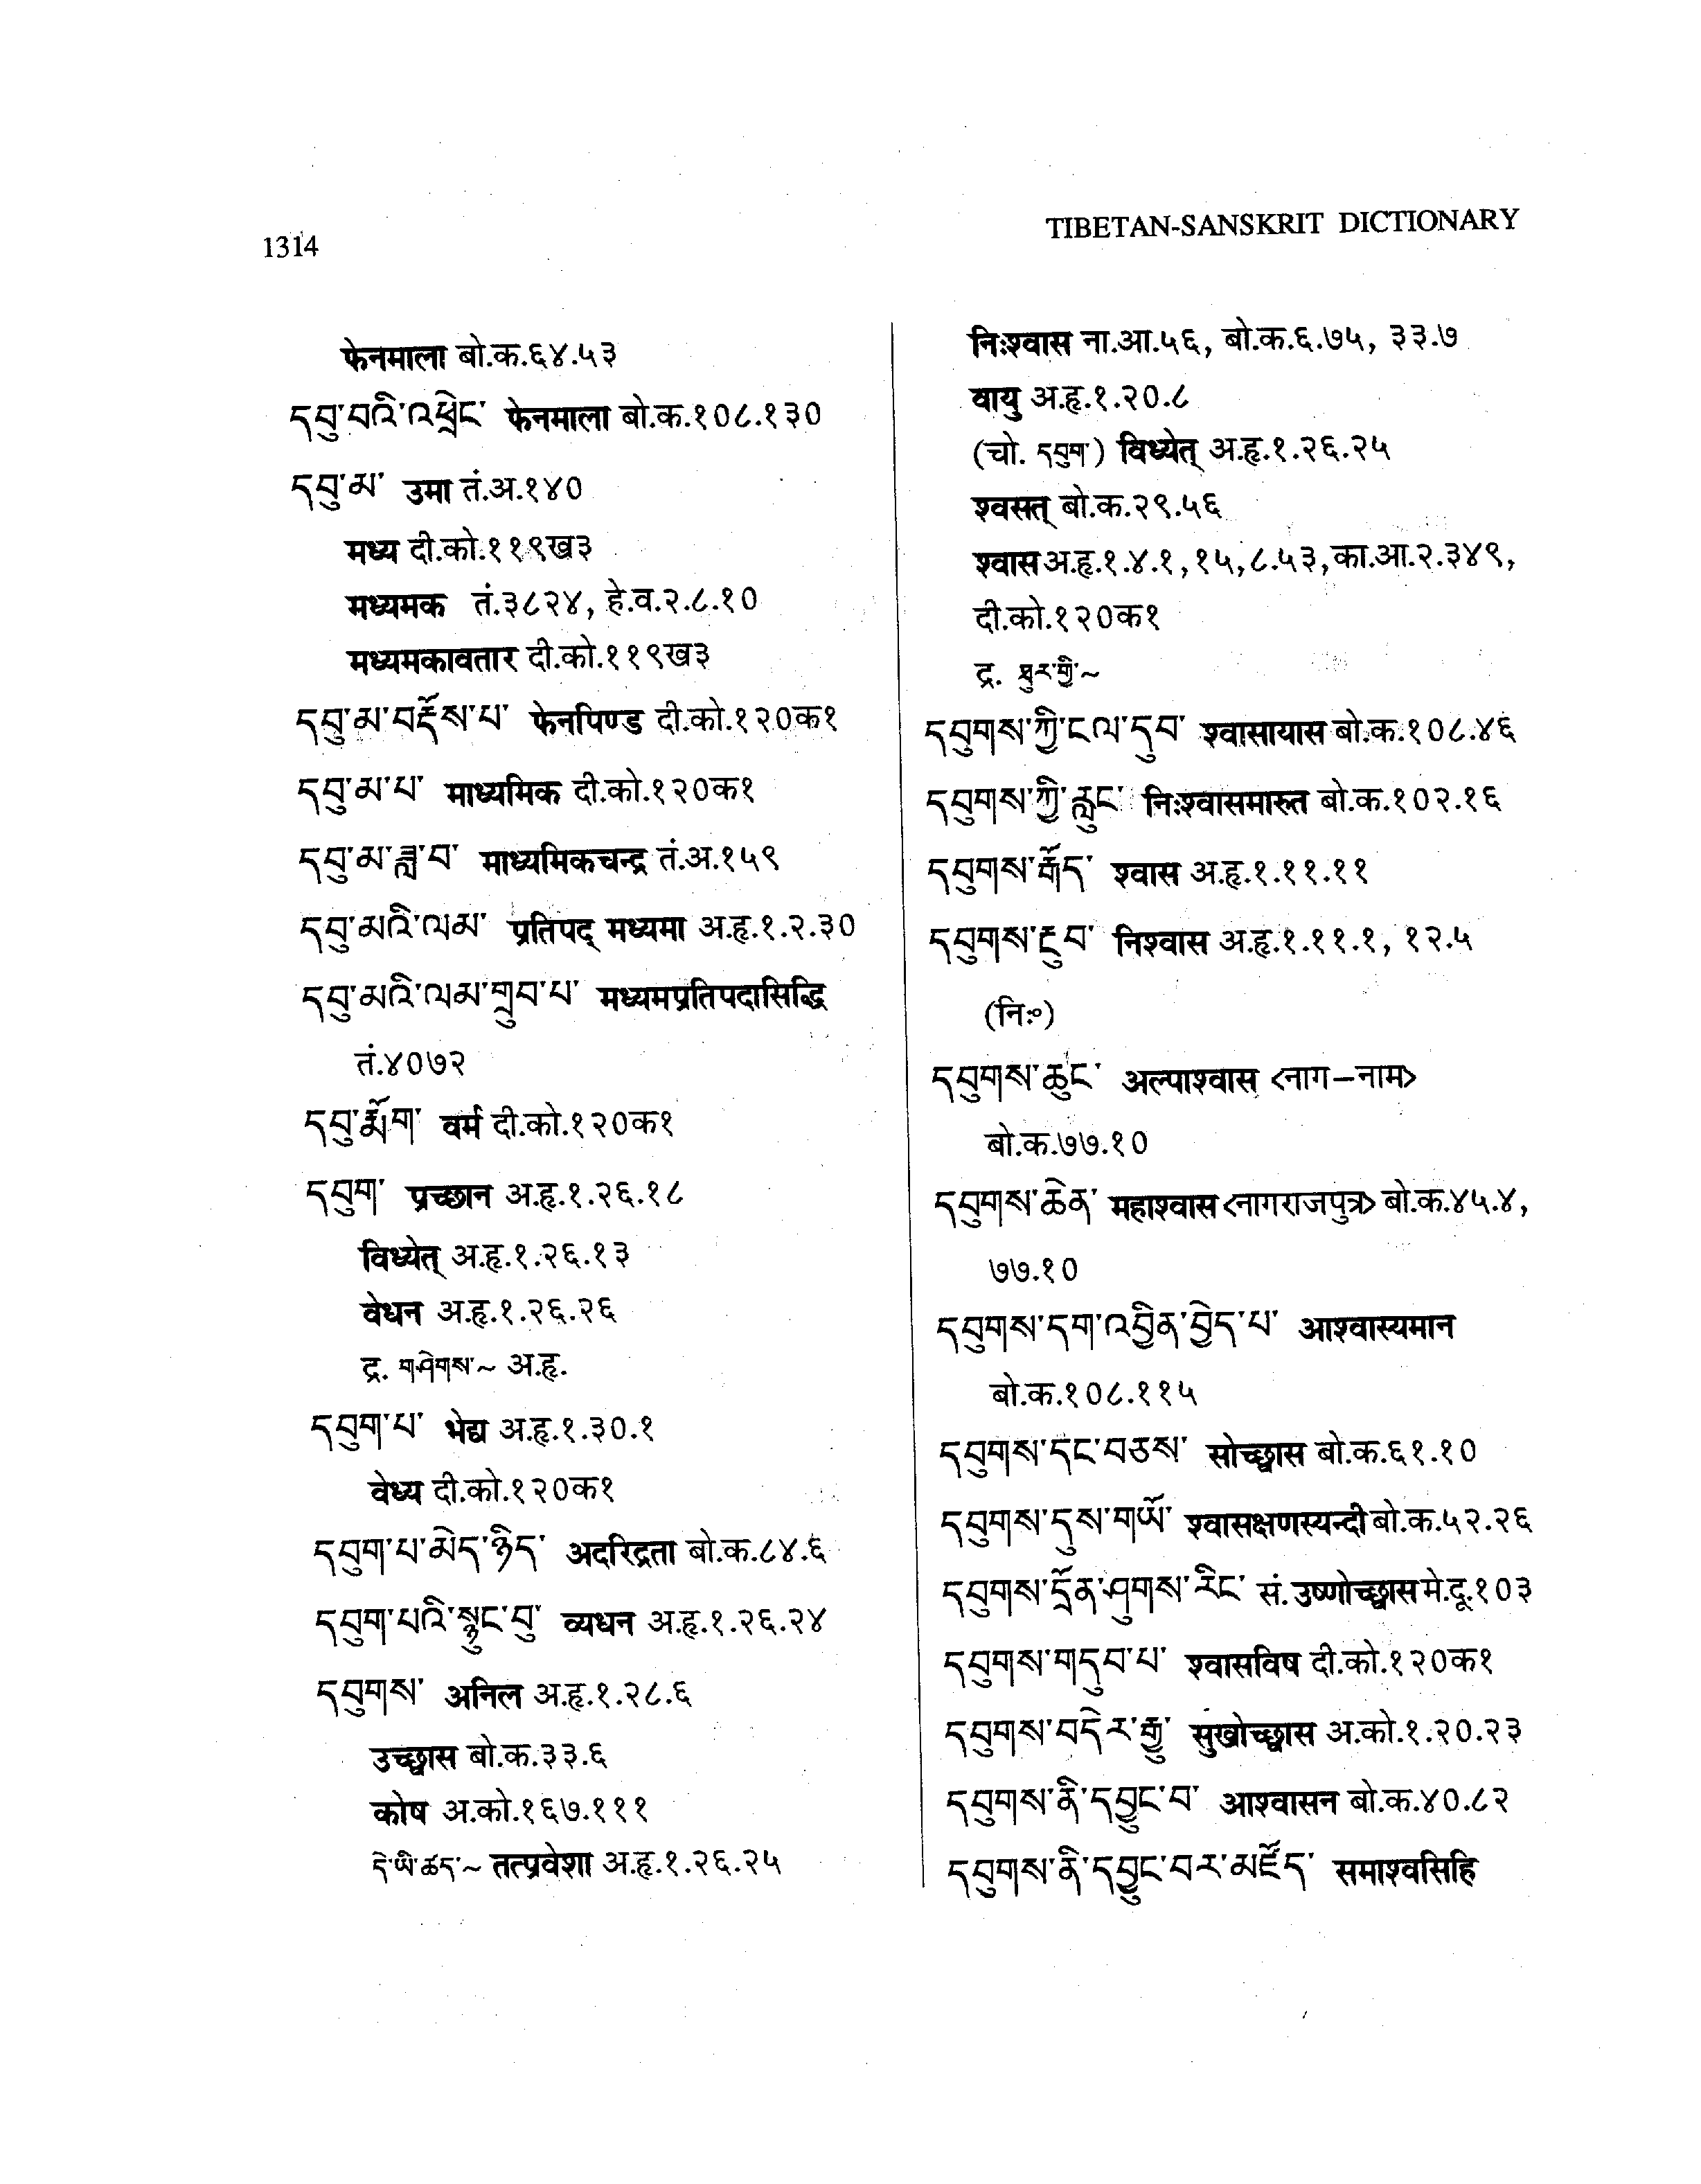 1314
TIBETAN-SANSKRIT DICTIONARY
फेनमाला बो.क.६४.५३
དབུ་བའི་འཕྲེང་ फेनमाला बो.क.१०८.१३०
དབུ་མ་ उमा तं.अ.१४०
मध्य दी.को.११९ख३
मध्यमक तं.३८२४, हे.व.२.८.१०
मध्यमकावतार दी.को.११९ख३
དབུ་མ་བརྡོས་པ་ फेनपिण्ड दी.को.१२०क१
དབུ་མ་པ་ माध्यमिक दी.को.१२०क१
དབུ་མ་ཟླ་བ་ माध्यमिकचन्द्र तं.अ.१५९
དབུ་མའི་ལམ་ प्रतिपद् मध्यमा अ.हृ.१.२.३०
དབུ་མའི་ལམ་གྲུབ་པ་ मध्यमप्रतिपदासिद्धि
तं.४०७२
དབུ་རྨོག་ वर्म दी.को.१२०क१
དབུག་ प्रच्छान अ.हृ.१.२६.१८
विध्येत् अ.हृ.१.२६.१३
वेधन अ.हृ.१.२६.२६
द्र. གཤེགས་~ अ.हृ.
དབུག་པ་ भेद्य अ.हृ.१.३०.१
वेध्य दी.को.१२०क१
དབུག་པ་མེད་ཉིད་ अदरिद्रता बो.क.८४.६
དབུག་པའི་སྙུང་བུ་ व्यधन अ.हृ.१.२६.२४
དབུགས་ अनिल अ.हृ.१.२८.६
उच्छ्वास बो.क.३३.६
कोष अ.को.१६७.१११
དེ་ཡི་ཚད་~ तत्प्रवेशा अ.हृ.१.२६.२५
निःश्वास ना.आ.५६, बो.क.६.७५, ३३.७
वायु अ.हृ.१.२०.८
(चो. དབུག་) विध्येत् अ.हृ.१.२६.२५
श्वसत् बो.क.२९.५६
श्वास अ.हृ.१.४.१,१५,८.५३,का.आ.२.३४९,
दी.को.१२०क१
द्र. ཐུར་གྱི་~
དབུགས་ཀྱི་ངལ་དུབ་ श्वासायास बो.क.१०८.४६
དབུགས་ཀྱི་རླུང་ निःश्वासमारुत बो.क.१०२.१६
དབུགས་རྒོད་ श्वास अ.हृ.१.११.११
དབུགས་རྔུབ་ निश्वास अ.हृ.१.११.१, १२.५
(निः०)
དབུགས་ཆུང་ अल्पाश्वास <नाग–नाम>
बो.क.७७.१०
དབུགས་ཆེན་ महाश्वास <नागराजपुत्र> बो.क.४५.४,
७७.१०
དབུགས་དག་འབྱིན་བྱེད་པ་ आश्वास्यमान
बो.क.१०८.११५
དབུགས་དང་བཅས་ सोच्छ्वास बो.क.६१.१०
དབུགས་དུས་གཡོ་ श्वासक्षणस्यन्दी बो.क.५२.२६
དབུགས་དྲོན་ཤུགས་རིང་ सं. उष्णोच्छ्वास मे.दू.१०३
དབུགས་གདུབ་པ་ श्वासविष दी.को.१२०क१
དབུགས་བདེར་རྒྱུ་ सुखोच्छ्वास अ.को.१.२०.२३
དབུགས་ནི་དབྱུང་བ་ आश्वासन बो.क.४०.८२
དབུགས་ནི་དབྱུང་བར་མཛོད་ समाश्वसिहि